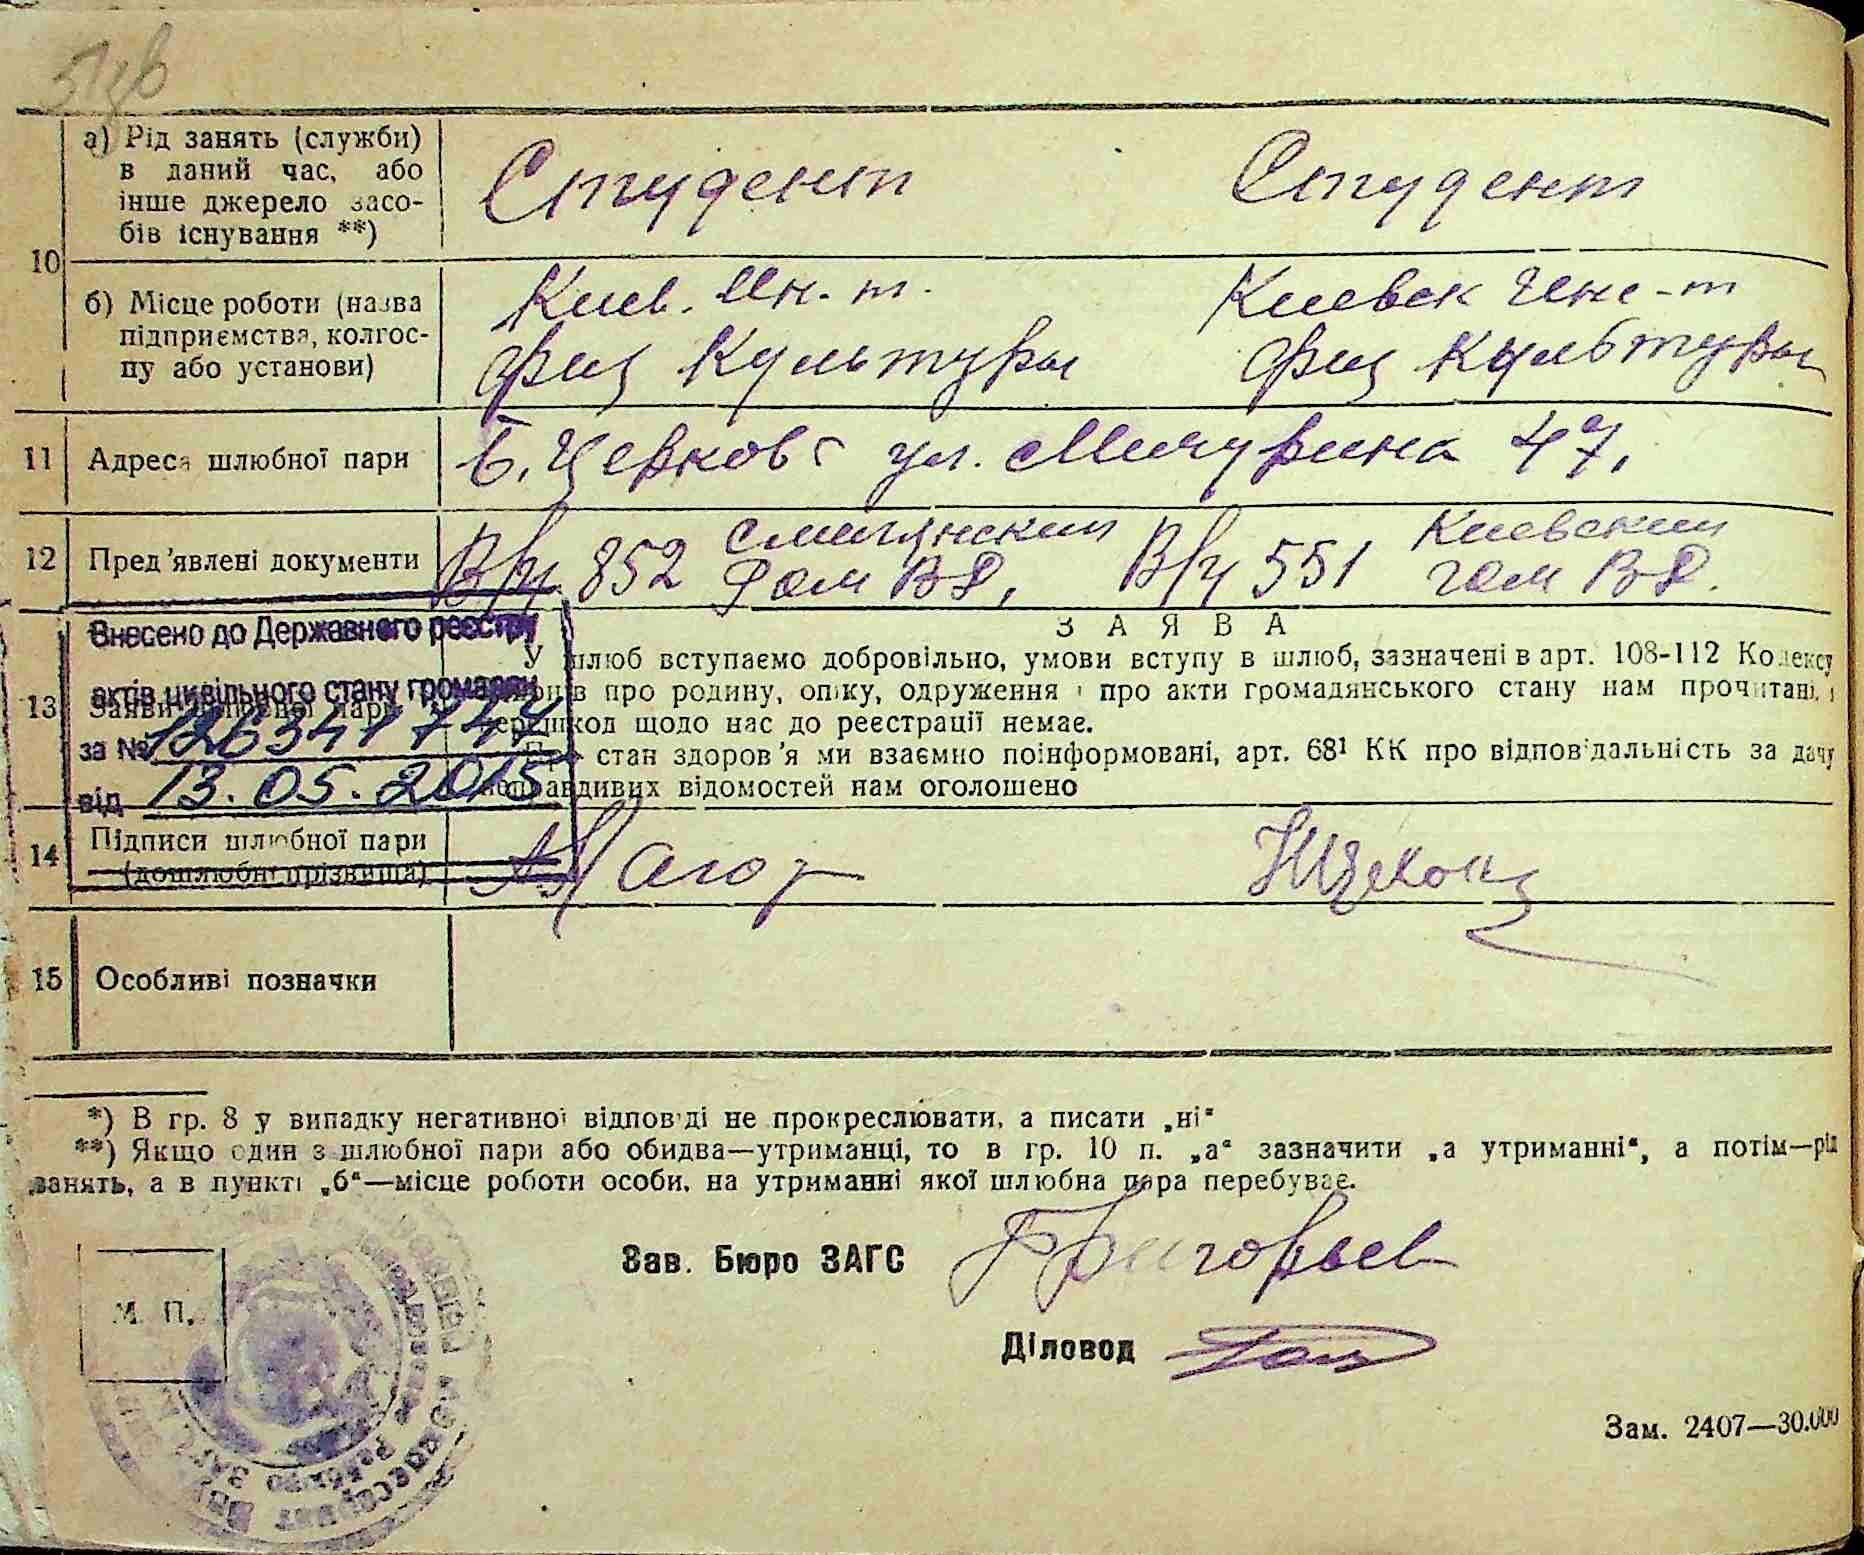 10
а) Рід занять (служби)
в даний час, або
інше джерело засо-
бів існування **)
Студент
Студент
б) Місце роботи (назва
підприємства, колгос-
пу або установи)
Киев. Ин-т.
физ Культуры
Киевск Инс-т
физ Культуры
11 Адреса шлюбної пари
Б. Церковь ул. Мичурина 47.
12 Пред'явлені документи
В/ч 852
Смилянским
РОМ ВД,
В/ч 551
Киевским
ГОМ ВД.
Внесено до Державного реєстру
актів цивільного стану громадян
за № 126341744
від 13.05.2015
13
ЗАЯВА
У шлюб вступаємо добровільно, умови вступу в шлюб, зазначені в арт. 108-112 Кодексу
про родину, опіку, одруження і про акти громадянського стану нам прочитані, і
перешкод щодо нас до реєстрації немає.
Про стан здоров'я ми взаємно поінформовані, арт. 68¹ КК про відповідальність за дачу
неправдивих відомостей нам оголошено
14 Підписи шлюбної пари
(дошлюбні прізвища)
15 Особливі позначки
*) В гр. 8 у випадку негативної відповіді не прокреслювати, а писати „ні“
**) Якщо один з шлюбної пари або обидва—утриманці, то в гр. 10 п. „а“ зазначити „а утриманні“, а потім—рід
занять, а в пункті „б“—місце роботи особи, на утриманні якої шлюбна пара перебуває.
Зав. Бюро ЗАГС Григорьев
М. П.
Діловод
Зам. 2407—30.000